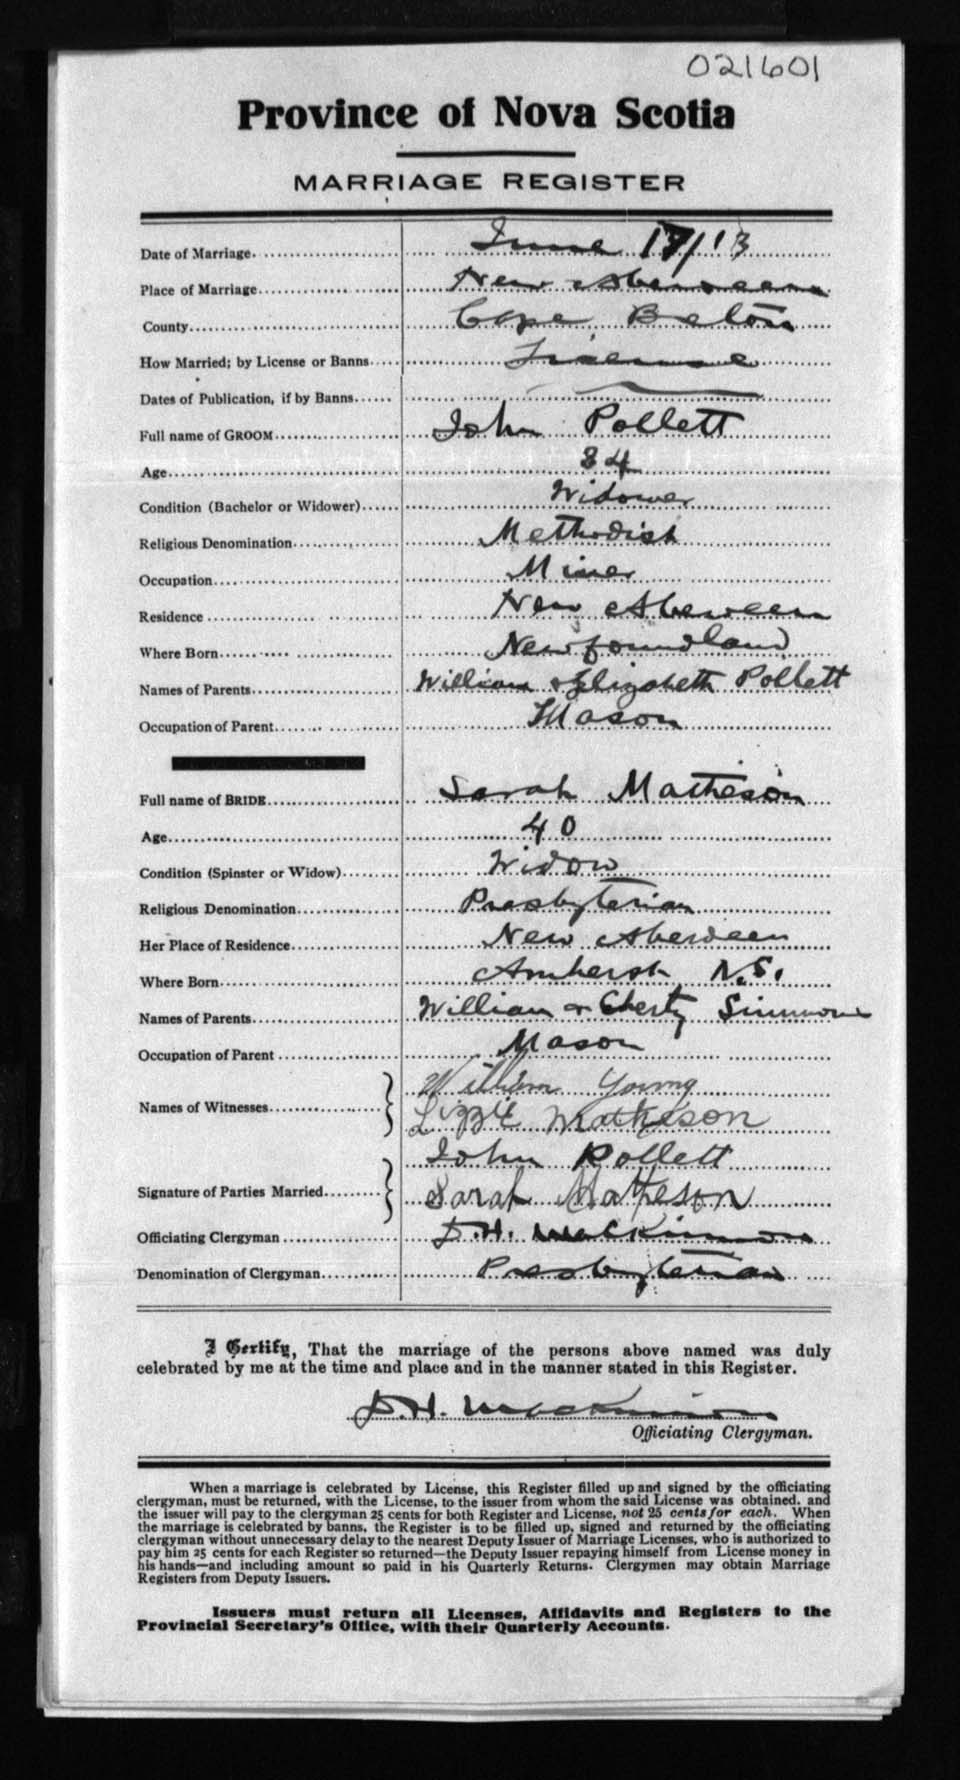 021601
Province of Nova Scotia
MARRIAGE REGISTER
Date of Marriage. June 17/13
Place of Marriage New Aberdeen
County Cape Breton
How Married; by License or Banns License
Dates of Publication, if by Banns
Full name of GROOM John Pollett
Age 34
Condition (Bachelor or Widower) Widower
Religious Denomination Methodist
Occupation Miner
Residence New Aberdeen
Where Born Newfoundland
Names of Parents William & Elizabeth Pollett
Occupation of Parent Mason
Full name of BRIDE Sarah Matheson
Age 40
Condition (Spinster or Widow) Widow
Religious Denomination Presbyterian
Her Place of Residence New Aberdeen
Where Born Amherst N.S.
Names of Parents William & Simmons
Occupation of Parent Mason
Names of Witnesses William Young
Lizzie Matheson
Signature of Parties Married John Pollett
Sarah Matheson
Officiating Clergyman D.H. MacKinnon
Denomination of Clergyman Presbyterian
I Certify, That the marriage of the persons above named was duly
celebrated by me at the time and place and in the manner stated in this Register.
D.H. MacKinnon
Officiating Clergyman.
When a marriage is celebrated by License, this Register filled up and signed by the officiating
clergyman, must be returned, with the License, to the issuer from whom the said License was obtained. and
the issuer will pay to the clergyman 25 cents for both Register and License, not 25 cents for each. When
the marriage is celebrated by banns, the Register is to be filled up, signed and returned by the officiating
clergyman without unnecessary delay to the nearest Deputy Issuer of Marriage Licenses, who is authorized to
pay him 25 cents for each Register so returned—the Deputy Issuer repaying himself from License money in
his hands—and including amount so paid in his Quarterly Returns. Clergymen may obtain Marriage
Registers from Deputy Issuers.
Issuers must return all Licenses, Affidavits and Registers to the
Provincial Secretary's Office, with their Quarterly Accounts.